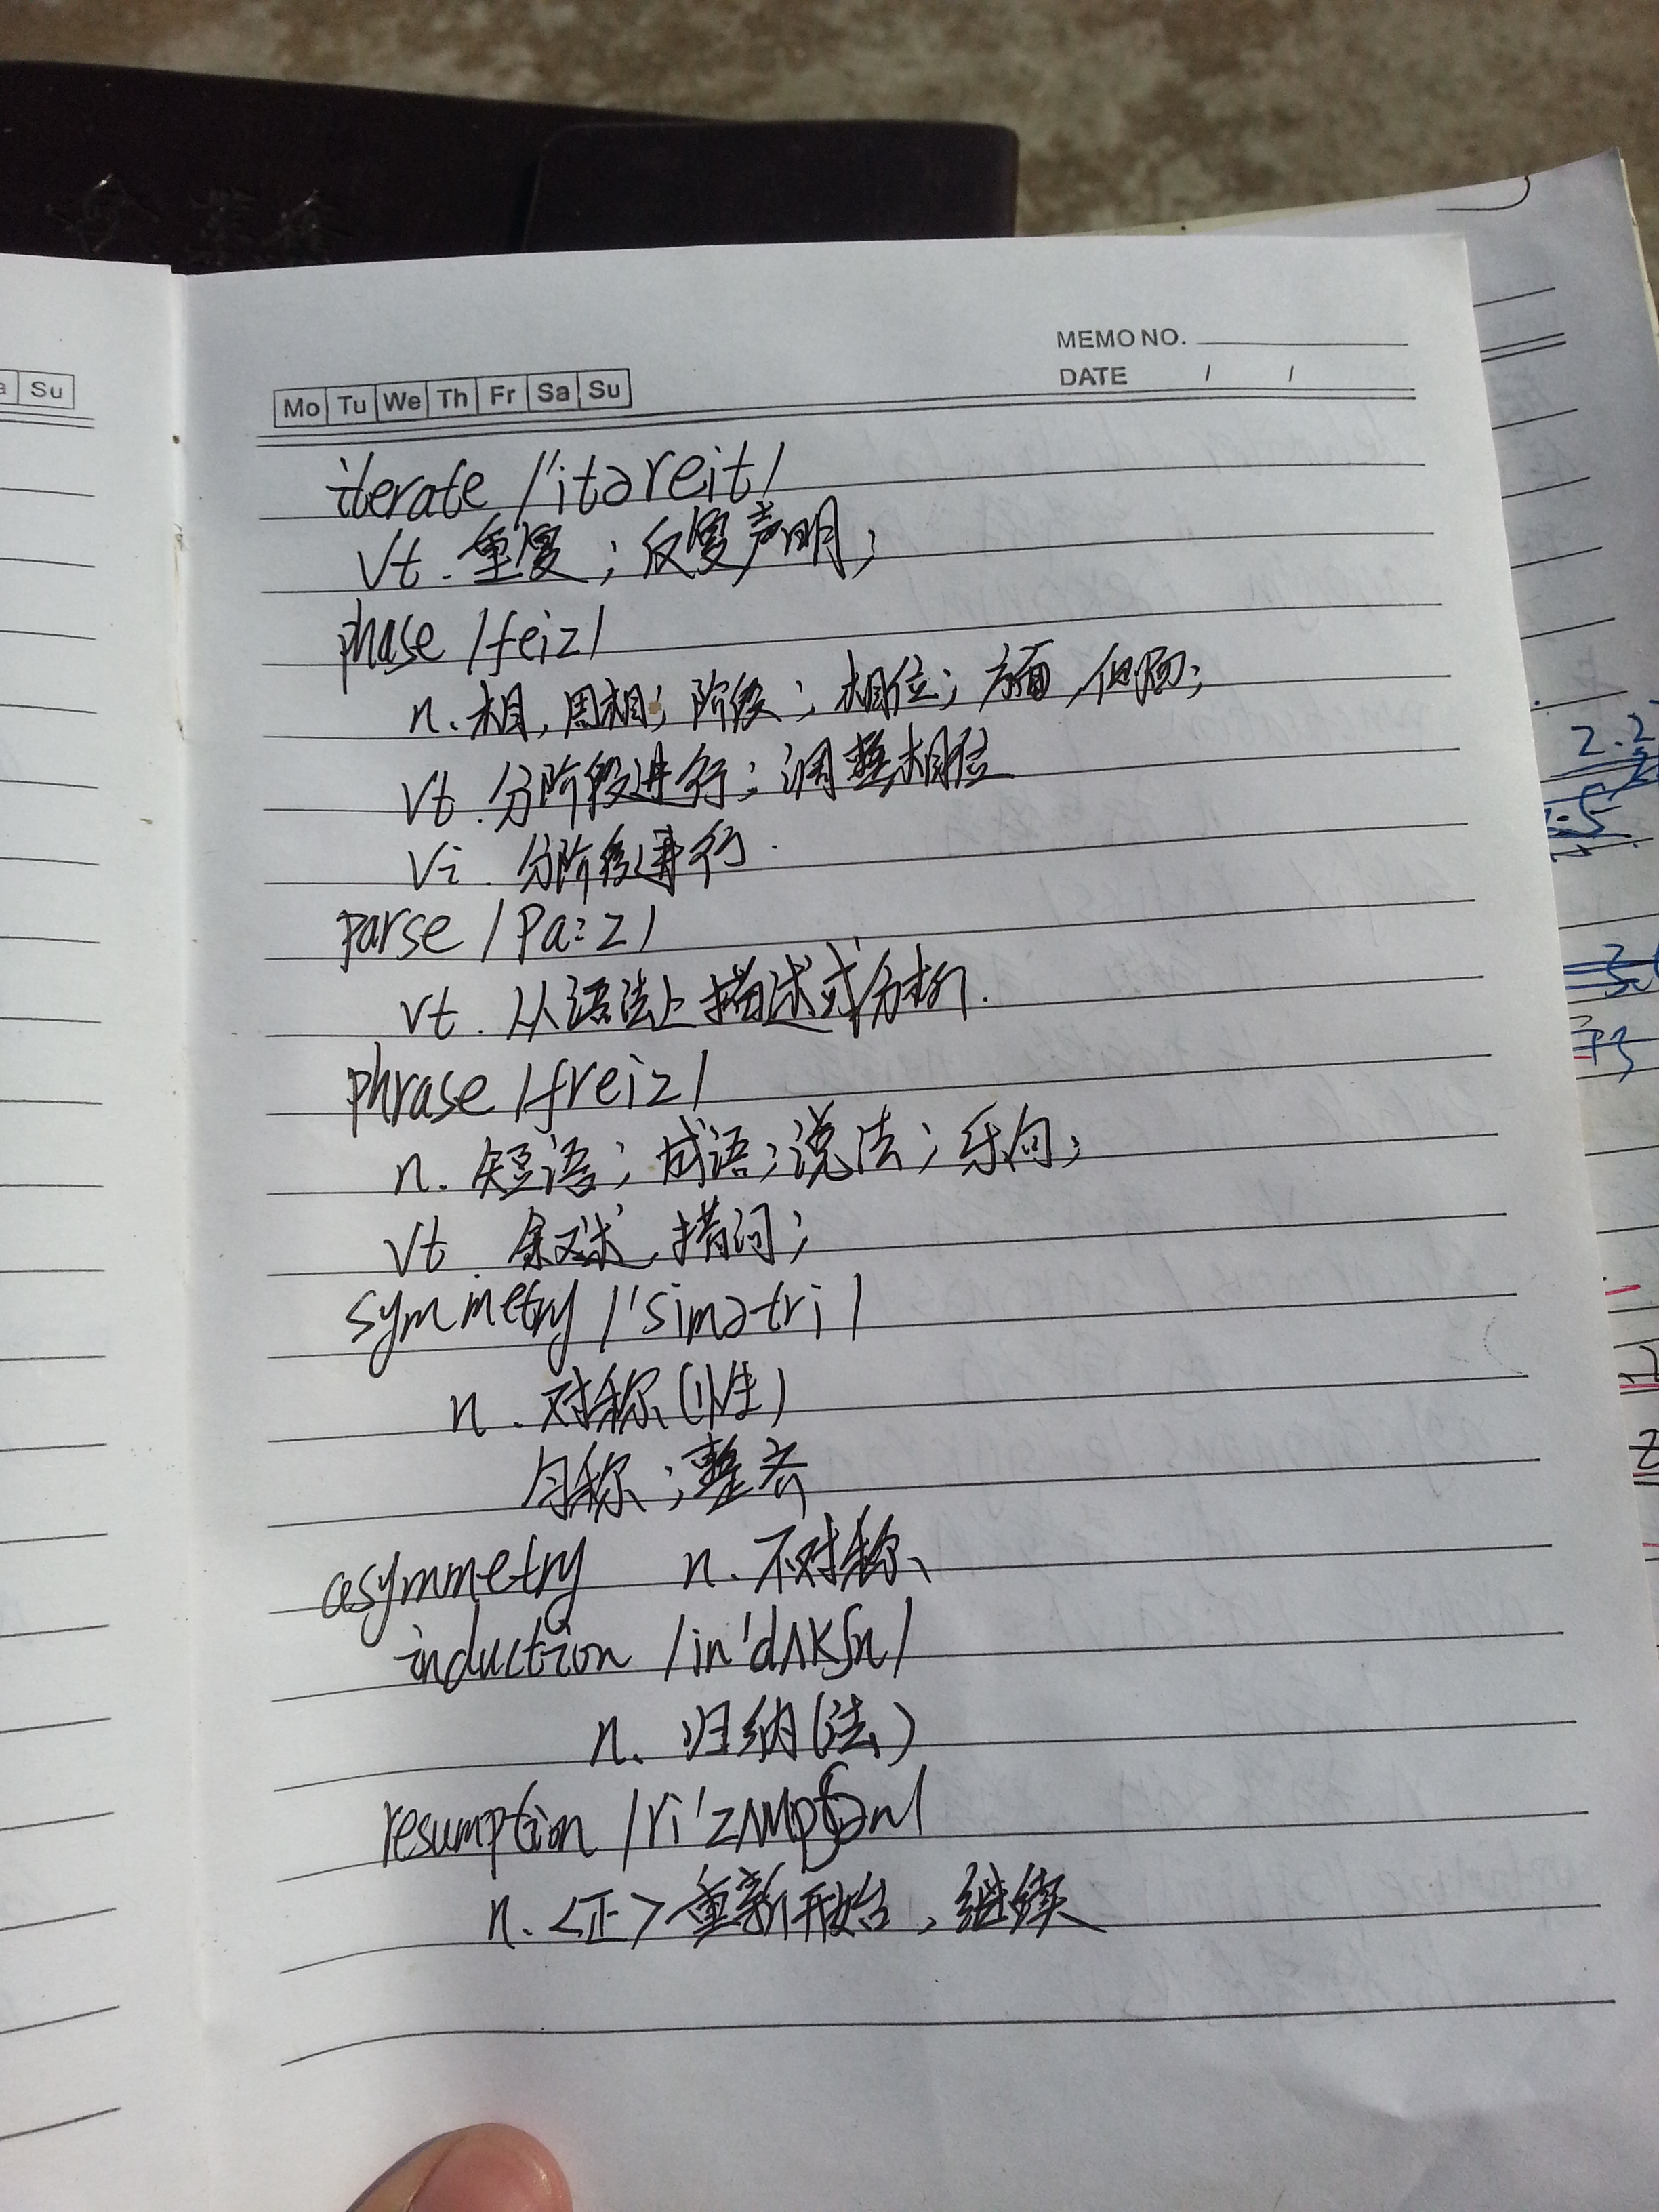 Su
Mo Tu We Th Fr Sa Su
MEMO NO.
DATE / /
iterate /'itəreit/
vt. 重复；反复声明；
phase /feiz/
n. 相，周相；阶段；相位；方面，
vt. 分阶段进行；调整相位
vi. 分阶段进行.
parse /pa:z/
vt. 从语法上描述或分析.
phrase /freiz/
n. 短语；成语；说法；乐句；
vt. 叙述，措词；
symmetry /'simətri/
n. 对称(性)
匀称；整齐
asymmetry n. 不对称、
induction /in'dʌkʃn/
n. 归纳(法)
resumption /ri'zʌmpʃən/
n. <正>重新开始，继续